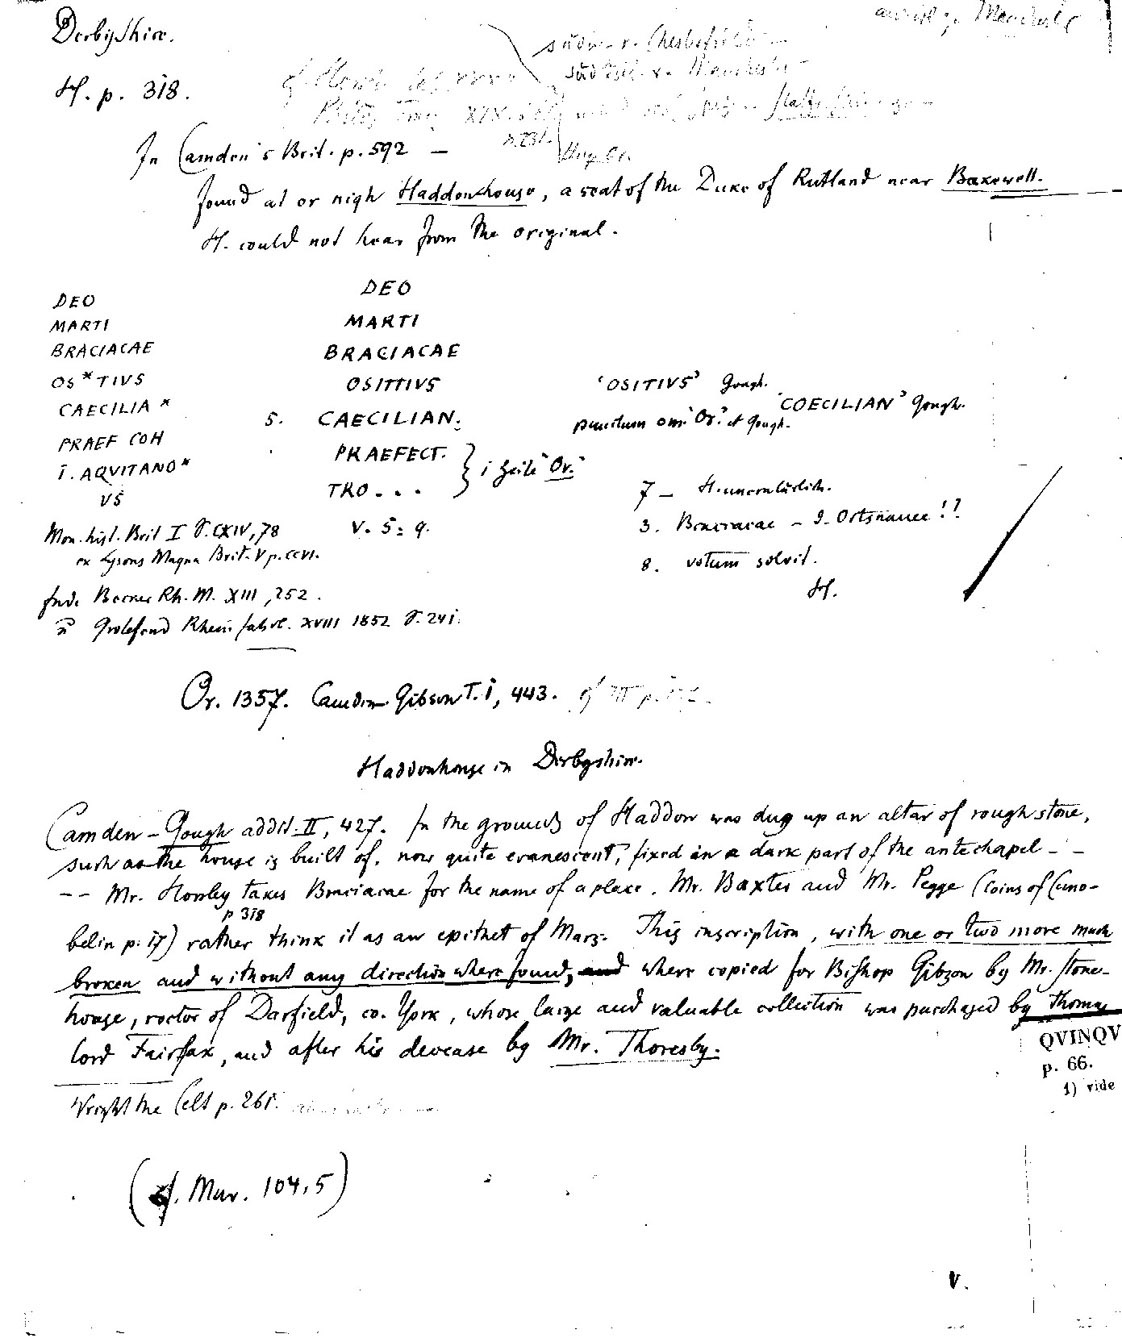 Derbyshire.
H. p. 318.
südl. v. Chesterfield
südöstl. v. Manchester
In Camden's Brit. p. 592 —
found at or nigh Haddonhouse, a seat of the Duke of Rutland near Bakewell.
H. could not hear from the original.
DEO
MARTI
BRACIACAE
OS*TIVS
CAECILIA *
PRAEF COH
I. AQVITANO*
VS
Mon. hist. Brit I S. CXIV, 78
ex Lysons Magna Brit. V p. CCVI.
Becker Rh. M. XIII, 252.
Grotefend Rhein. Jahrb. XVIII 1852 S. 241.
DEO
MARTI
BRACIACAE
OSITTIVS
5. CAECILIAN.
PRAEFECT.
TRO . . .
1 Zeile "Or."
V. S. 9.
'OSITIVS' Gough. 'COECILIAN' Gough.
punctum om. 'Or.' et Gough.
7 — H.
3. Braciacae — I. Ortsname!!
8. votum solvit.
H.
Or. 1357. Camden Gibson T. I, 443.
Haddonhouse in Derbyshire.
Camden-Gough addit. II, 427. In the grounds of Haddon was dug up an altar of rough stone,
such as the house is built of, now quite evanescent, fixed in a dark part of the antechapel - -
-- Mr. Horsley takes Braciacae for the name of a place. Mr. Baxter and Mr. Pegge (Coins of Cuno-
p 318
belin p. 17) rather think it as an epithet of Mars. This inscription, with one or two more much
broken and without any direction where found, and where copied for Bishop Gibson by Mr. Stone-
house, rector of Darfield, co. York, whose large and valuable collection was purchased by Thomas
lord Fairfax, and after his decease by Mr. Thoresby.
QVINQV
p. 66.
1) vide
Wright the Celt p. 261.
(cf. Mur. 104, 5)
V.